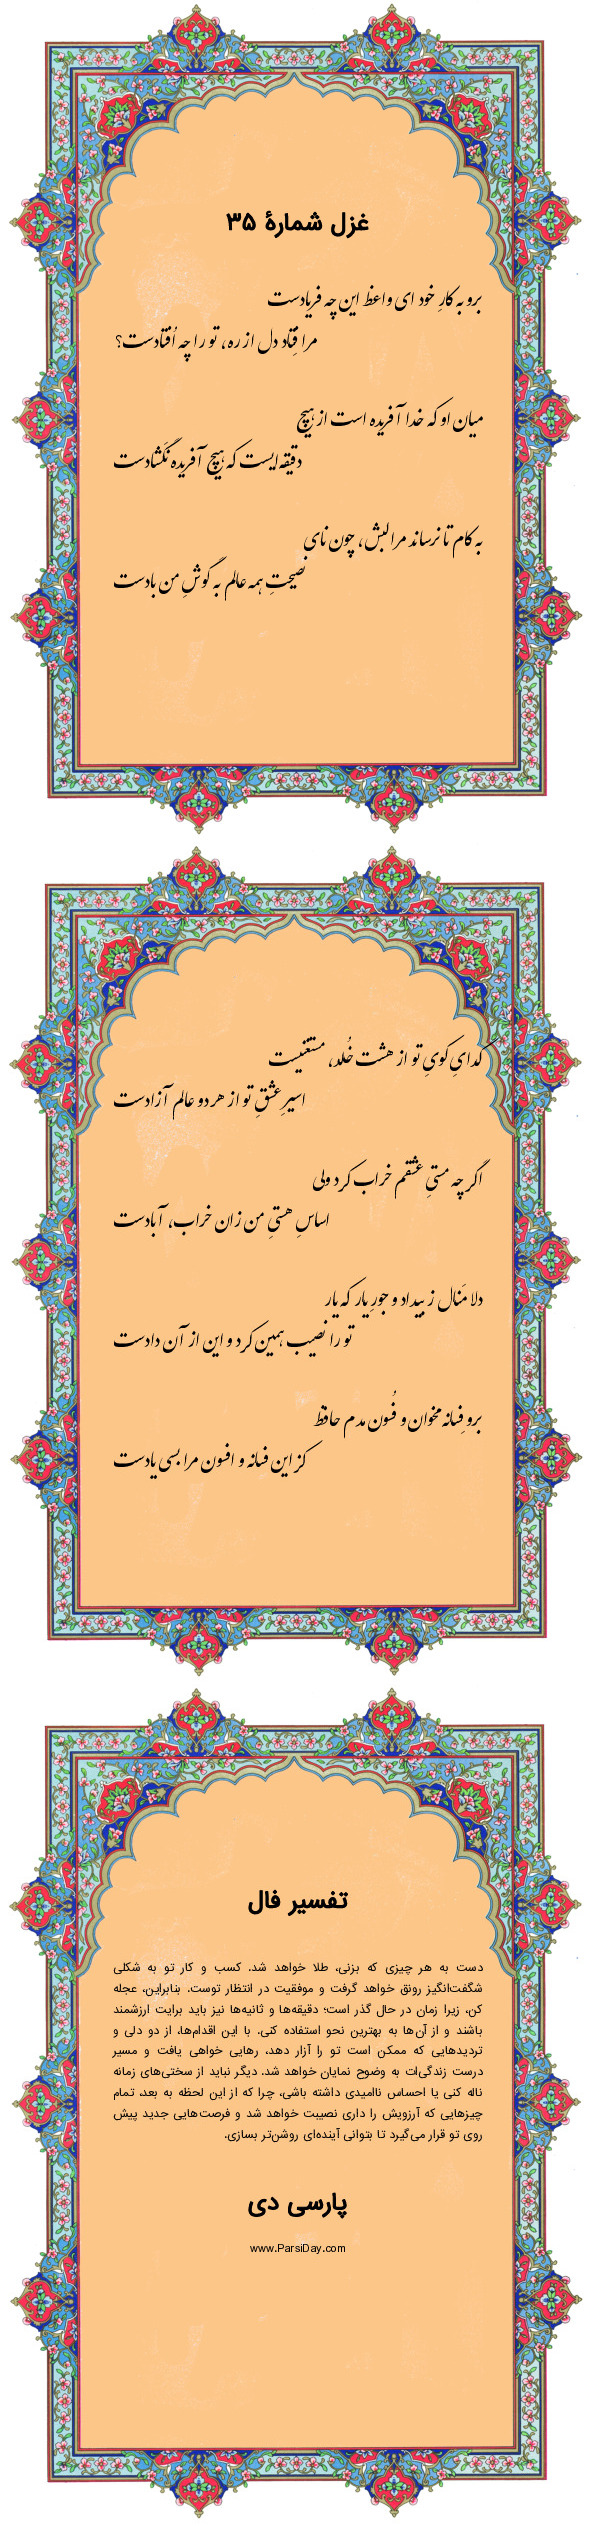 غزل شمارهٔ ۳۵
برو به کارِ خود ای واعظ این چه فریادست
مرا فِتاد دل از ره، تو را چه اُفتادست؟
میان او که خدا آفریده است از هیچ
دقیقه‌ایست که هیچ آفریده نَگشادست
به کام تا نرساند مرا لبش، چون نای
نصیحتِ همه عالم به گوشِ من بادست
گدایِ کویِ تو از هشت خُلد، مستغنیست
اسیرِ عشقِ تو از هر دو عالم آزادست
اگر چه مستیِ عشقم خراب کرد ولی
اساسِ هستیِ من زان خراب، آبادست
دلا مَنال ز بیداد و جورِ یار که یار
تو را نصیب همین کرد و این از آن دادست
برو فِسانه مخوان و فُسون مدم حافظ
کز این فسانه و افسون مرا بسی یادست
تفسیر فال
دست به هر چیزی که بزنی، طلا خواهد شد. کسب و کار تو به شکلی
شگفت‌انگیز رونق خواهد گرفت و موفقیت در انتظار توست. بنابراین، عجله
کن، زیرا زمان در حال گذر است؛ دقیقه‌ها و ثانیه‌ها نیز باید برایت ارزشمند
باشند و از آن‌ها به بهترین نحو استفاده کنی. با این اقدام‌ها، از دو دلی و
تردیدهایی که ممکن است تو را آزار دهد، رهایی خواهی یافت و مسیر
درست زندگی‌ات به وضوح نمایان خواهد شد. دیگر نباید از سختی‌های زمانه
ناله کنی یا احساس ناامیدی داشته باشی، چرا که از این لحظه به بعد، تمام
چیزهایی که آرزویش را داری نصیبت خواهد شد و فرصت‌هایی جدید پیش
روی تو قرار می‌گیرد تا بتوانی آینده‌ای روشن‌تر بسازی.
پارسی دی
www.ParsiDay.com